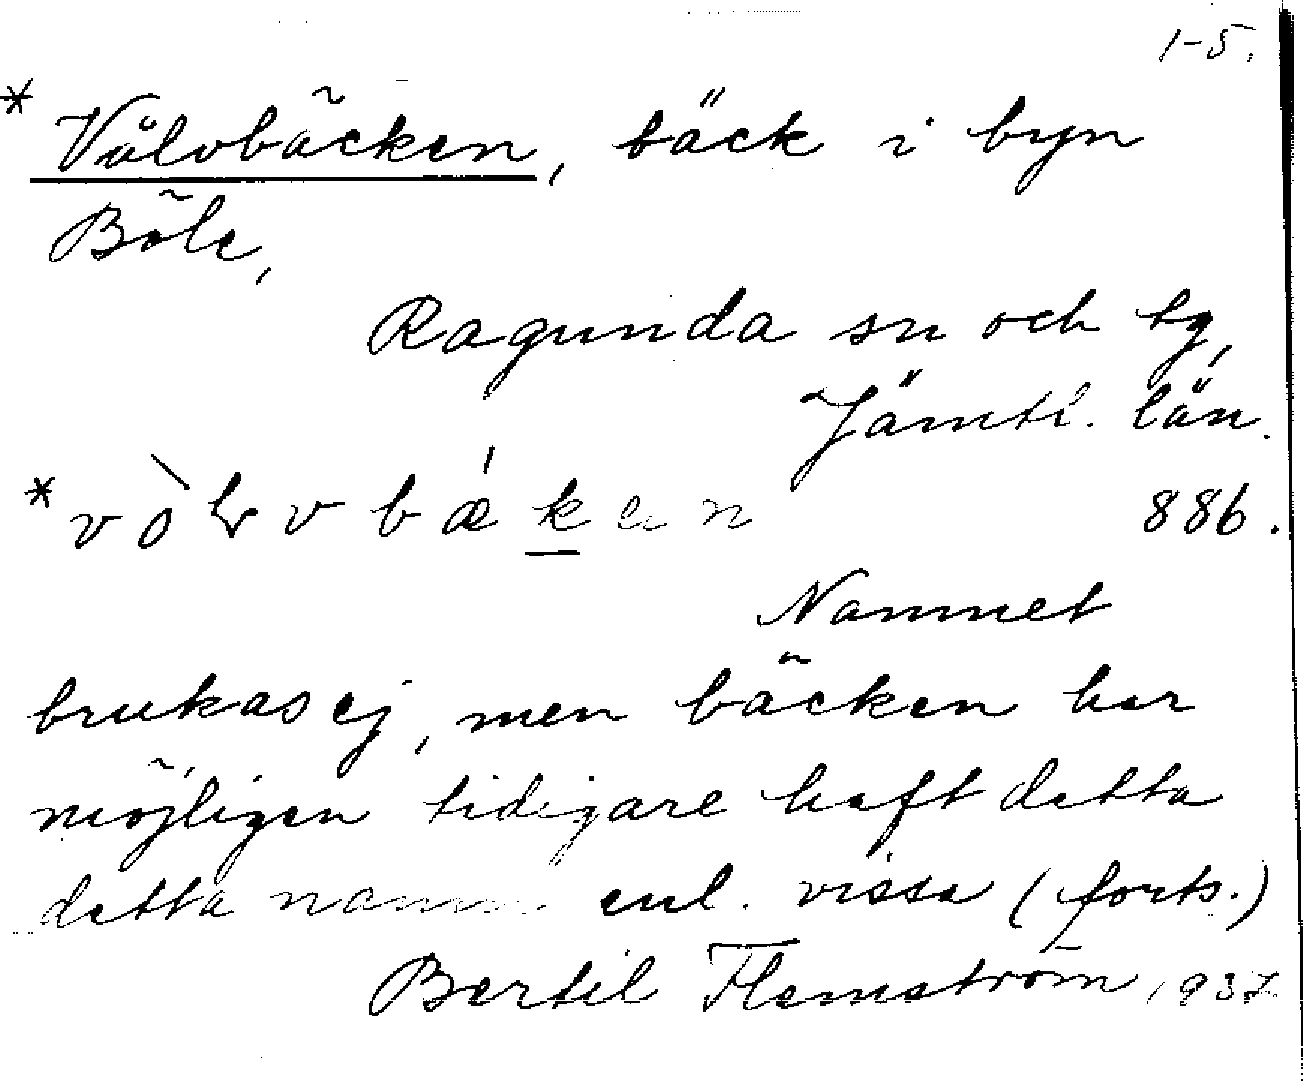 1-5.
* Vålvbäcken, bäck i byn
Böle,
Ragunda sn och tg,
Jämtl. län.
* vòlvbákan
886.
Namnet
brukas ej, men bäcken har
möjligen tidigare haft detta
detta namn enl. vissa (forts.)
Bertil Flemström 1937